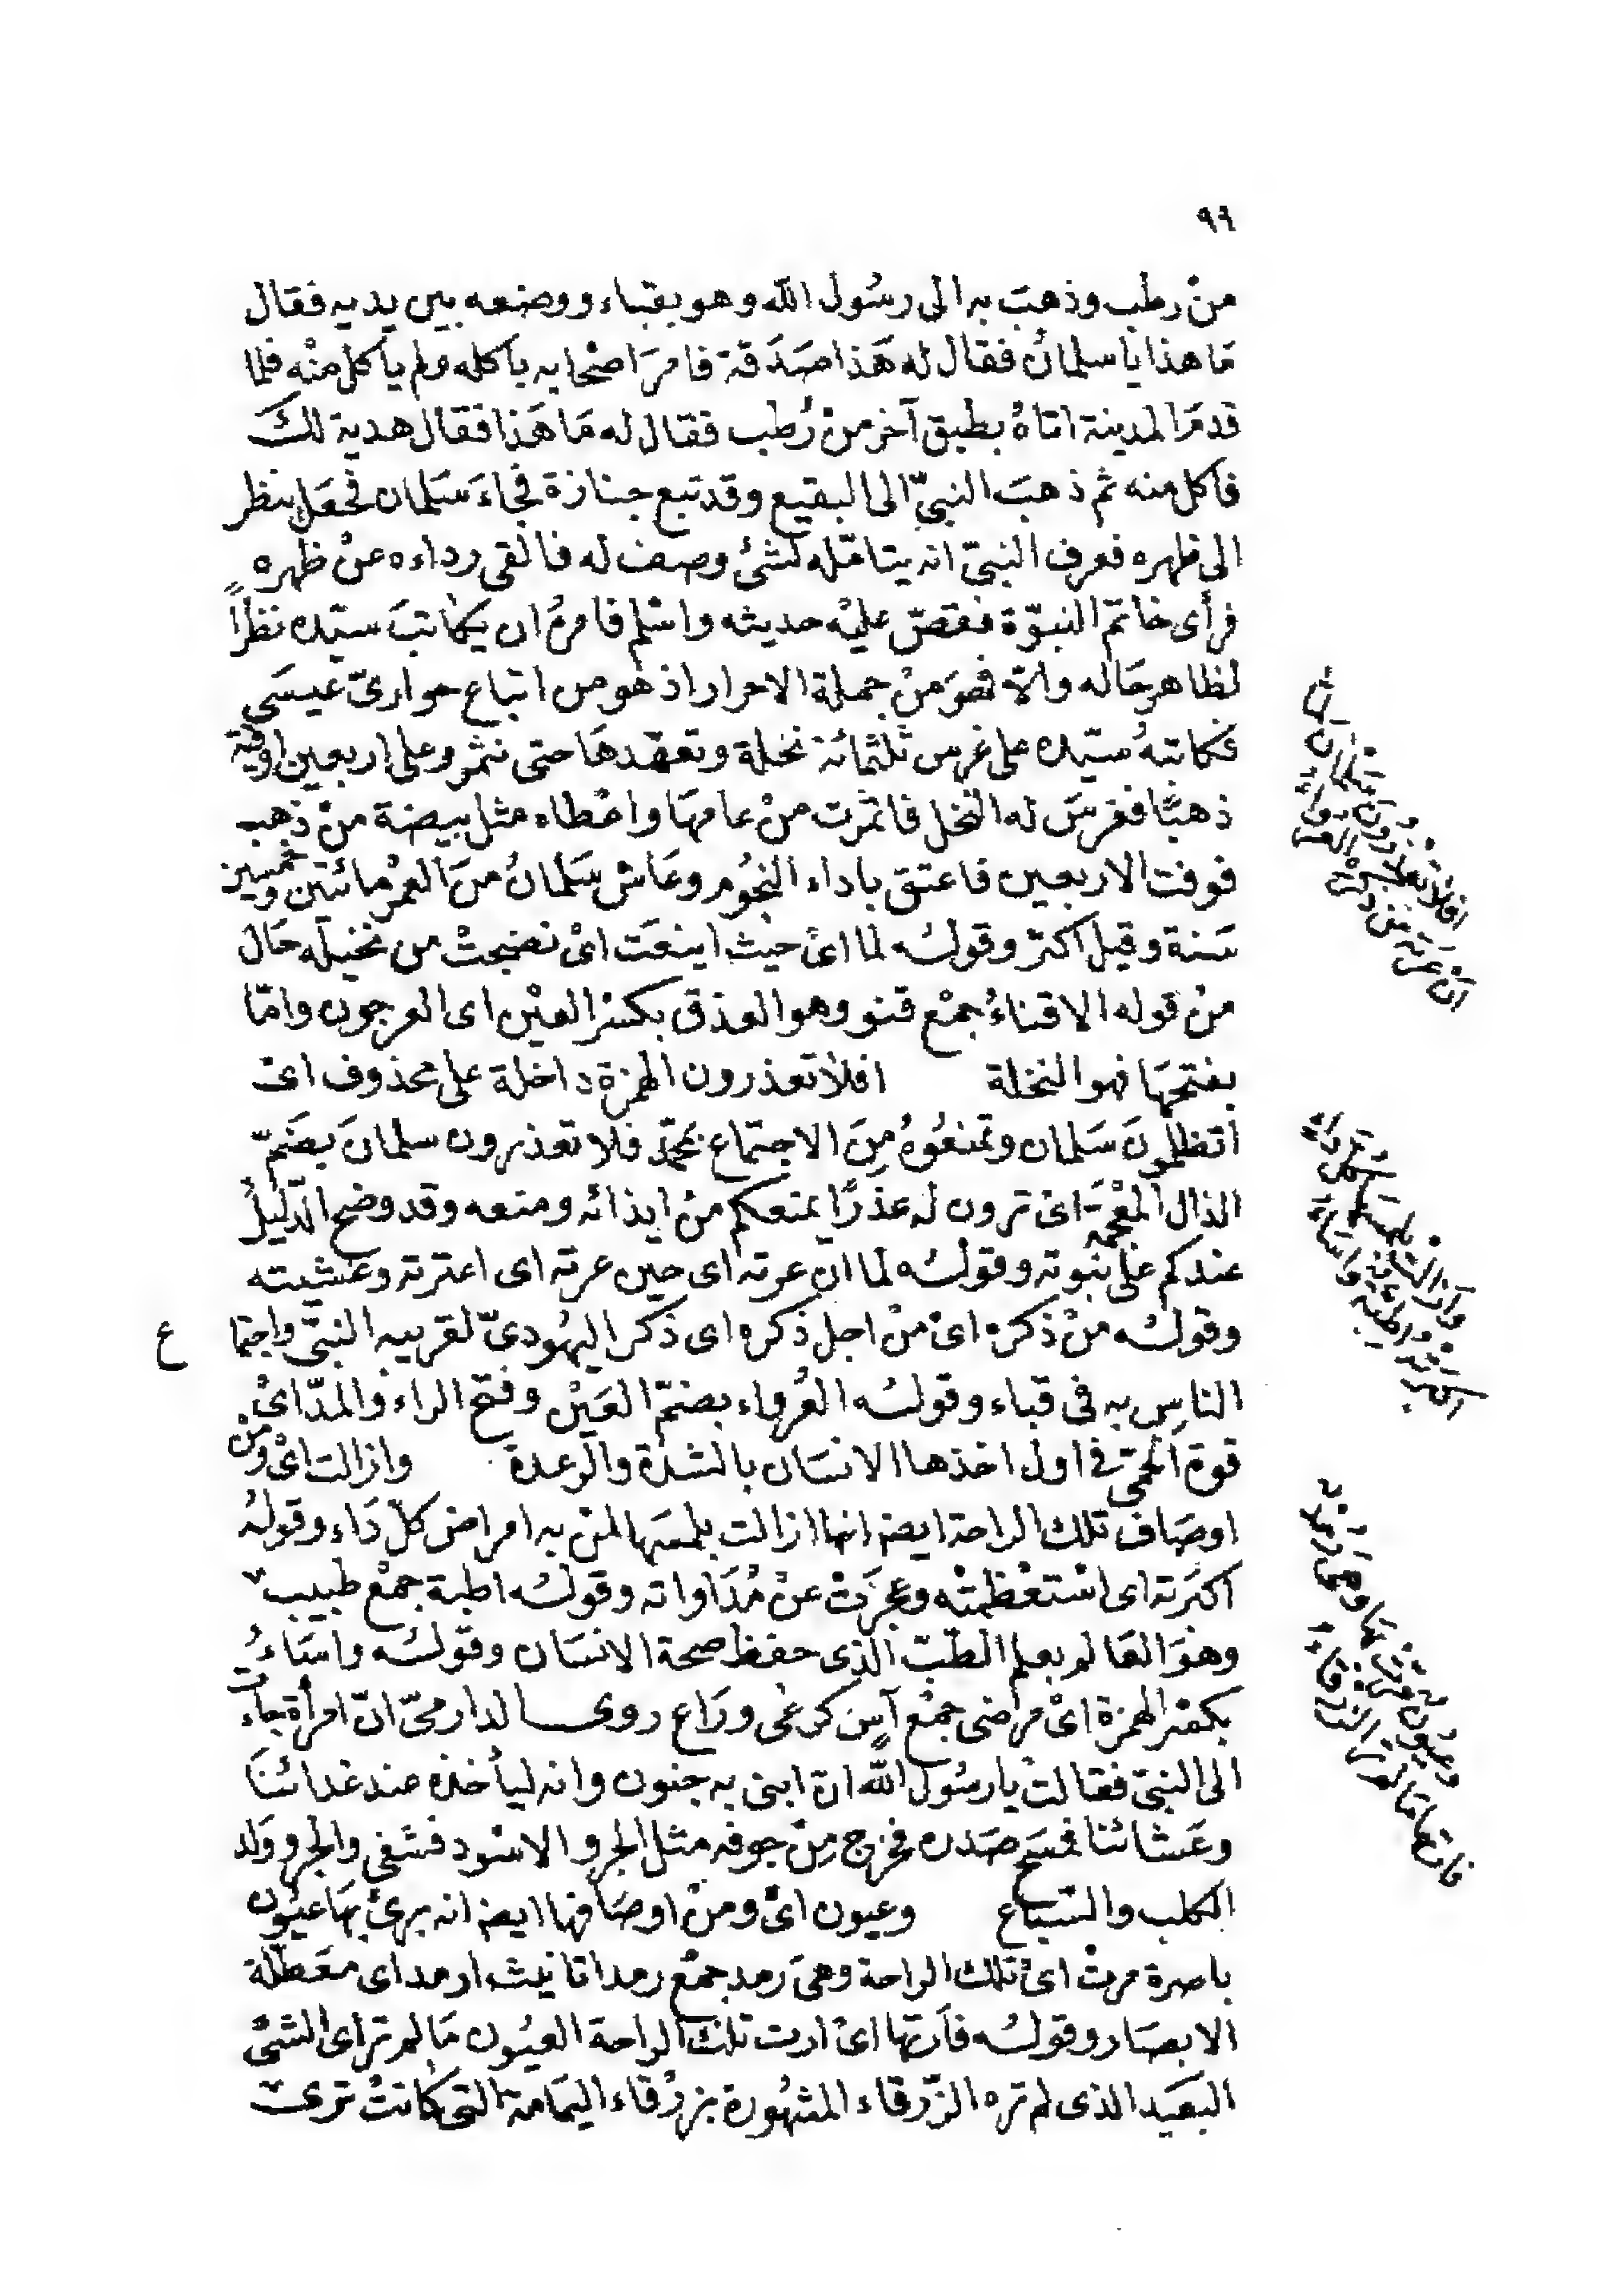 ٩٦
منْ رطب وذهبَ به الى رسُول الله وهو بقباء ووضعه بين يديه فقال
مَا هذا يا سلمانُ فقال له هَذا صَدَقة فامرَ اصْحابه باكله ولم يأكل منْه فلما
قدمَ المدينة اتاهُ بطبق آخر منْ رُطب فقال له مَا هَذا فقال هدية لكَ
فاكل منه ثم ذهبَ النبيّ الى البقيع وقد تبع جنازة فجاءَ سَلمان فجعَل ينظر
الى ظهره فعرف النبيّ انه يتامّله لشئ وصف له فالقى رداءه عنْ ظهره
فرأى خاتم النبوّة فقصّ عليْه حديثه واسْلم فامرهُ ان يكاتبَ سيّده نظرًا
لظاهر حَاله والّا فهوَ منْ جملة الاحرار اذ هُو من اتباع حوارىّ عيسَى
فكاتبهُ سيّده على غرس ثلثمائة نخلة وتعهّدهَا حتى تثمر وعلى اربعين اوقية
ذهبًا فغرسَ له النخل فاثمرت منْ عامهَا واعْطاه مثل بيضة منْ ذهب
فوفت الاربعين فاعتق باداء النجُوم وعَاش سَلمانُ منَ العمرْ مائتين وخمسين
سَنة وقيل اكثر وقولُه لما اىْ حيث اينعَت اىْ نضجتْ من نخيله حَال
منْ قوله الاقناءُ جمْع قنو وهو العذق بكسْر العيْن اى العرجون وامّا
بفتحهَا فهو النخلة افلا تعذرون الهمزة داخلة على محذوف اىْ
اتظلمُونَ سَلمان وتمنعُوهُ مِنَ الاجتماع بمحمّد فلا تعذرون سلمانَ بضَمّ
الذال المعْجمَة اىْ ترون له عذرًا يمنعكم منْ ايذائه ومنعه وقد وضح الدّليلُ
عندكم على نبوته وقولُه لما ان عرته اى حين عرته اى اعترته وغشيته
وقولُه منْ ذكرَه اىْ منْ اجل ذكره اى ذكر اليهُودىّ لقريبه النبيّ واجتما ع
الناسِ به فى قباء وقولُه العُرواء بضمّ العَيْن وفتح الراء والمدّ اىْ
قوة الحمّى فى اول اخذها الانسَان بالشدة والرعدة وازالت اىْ ومنْ
اوصَاف تلك الراحة ايضا انها ازالت بلمسهَا لمن به امراض كلّ دَاء وقولهُ
اكبَرته اى اسْتعْظمتْه وعجزَتْ عنْ مُدَاواته وقولُه اطبة جمْع طبيب
وهوَ العَالم بعلم الطّبّ الذى حفظ صحة الانسَان وقولُه واسَاءُ
بكسْر الهمزة اىْ مرضى جمْع آسٍ كرعَى ورَاع روى الدارمىّ انّ امرأة جاءت
الى النبىّ فقالتْ يا رسُول الله ان ابنى به جنون وانه ليأخذه عند غدائنَا
وعَشائنا فمسَح صَدره فخرج مِنْ جوفه مثل الجرو الاسْود فشفى والجرو ولد
الكلب والسّباع وعيون اىْ ومنْ اوصَافها ايضا انه برئ بهَا عيُون
باصرة مرتْ اىْ تلك الراحة وهىَ رمد جمْع رمدا تانيث ارمد اى معَطلة
الابصَار وقولُه فاَرتها اىْ ارت تلك الراحة العيُون مَا لم تر اى الشىْ
البَعيد الذى لم تره الزّرقاء المشهُورة بزرْقاء اليمَامَة التى كانتْ ترى
افلا تعذرون سلمان لما
انْ عرته من ذكره العرواء
وازالت بلمسها كل داء
اكبرته اطبة واساء
وعيون مرت بها وهى رمد
فارتها ما لم تر الزرقاء